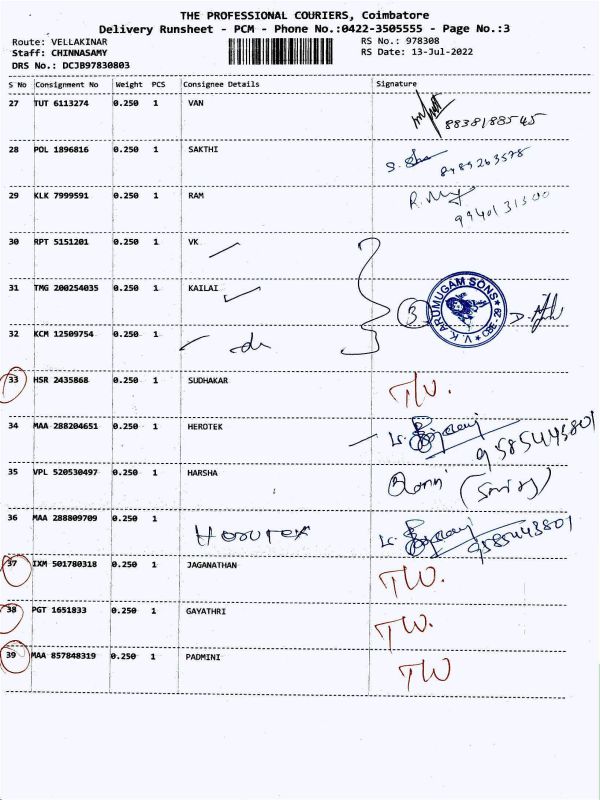 THE PROFESSIONAL COURIERS, Coimbatore
Delivery Runsheet - PCM - Phone No.:0422-3505555 - Page No.:3
Route: VELLAKINAR RS No.: 978308
Staff: CHINNASAMY RS Date: 13-Jul-2022
DRS No.: DCJB97830803
S No Consignment No Weight PCS Consignee Details Signature
27 TUT 6113274 0.250 1 VAN 8838188545
28 POL 1896816 0.250 1 SAKTHI
29 KLK 7999591 0.250 1 RAM 9940131500
30 RPT 5151201 0.250 1 VK
31 TMG 200254035 0.250 1 KAILAI 3 V. K. ARUMUGAM SONS
32 KCM 12509754 0.250 1 -do
33 HSR 2435868 0.250 1 SUDHAKAR TW.
34 MAA 288204651 0.250 1 HEROTEK 9585443801
35 VPL 520530497 0.250 1 HARSHA
36 MAA 288809709 0.250 1 Herotex 9585443801
37 IXM 501780318 0.250 1 JAGANATHAN TW.
38 PGT 1651833 0.250 1 GAYATHRI TW.
39 MAA 857848319 0.250 1 PADMINI TW